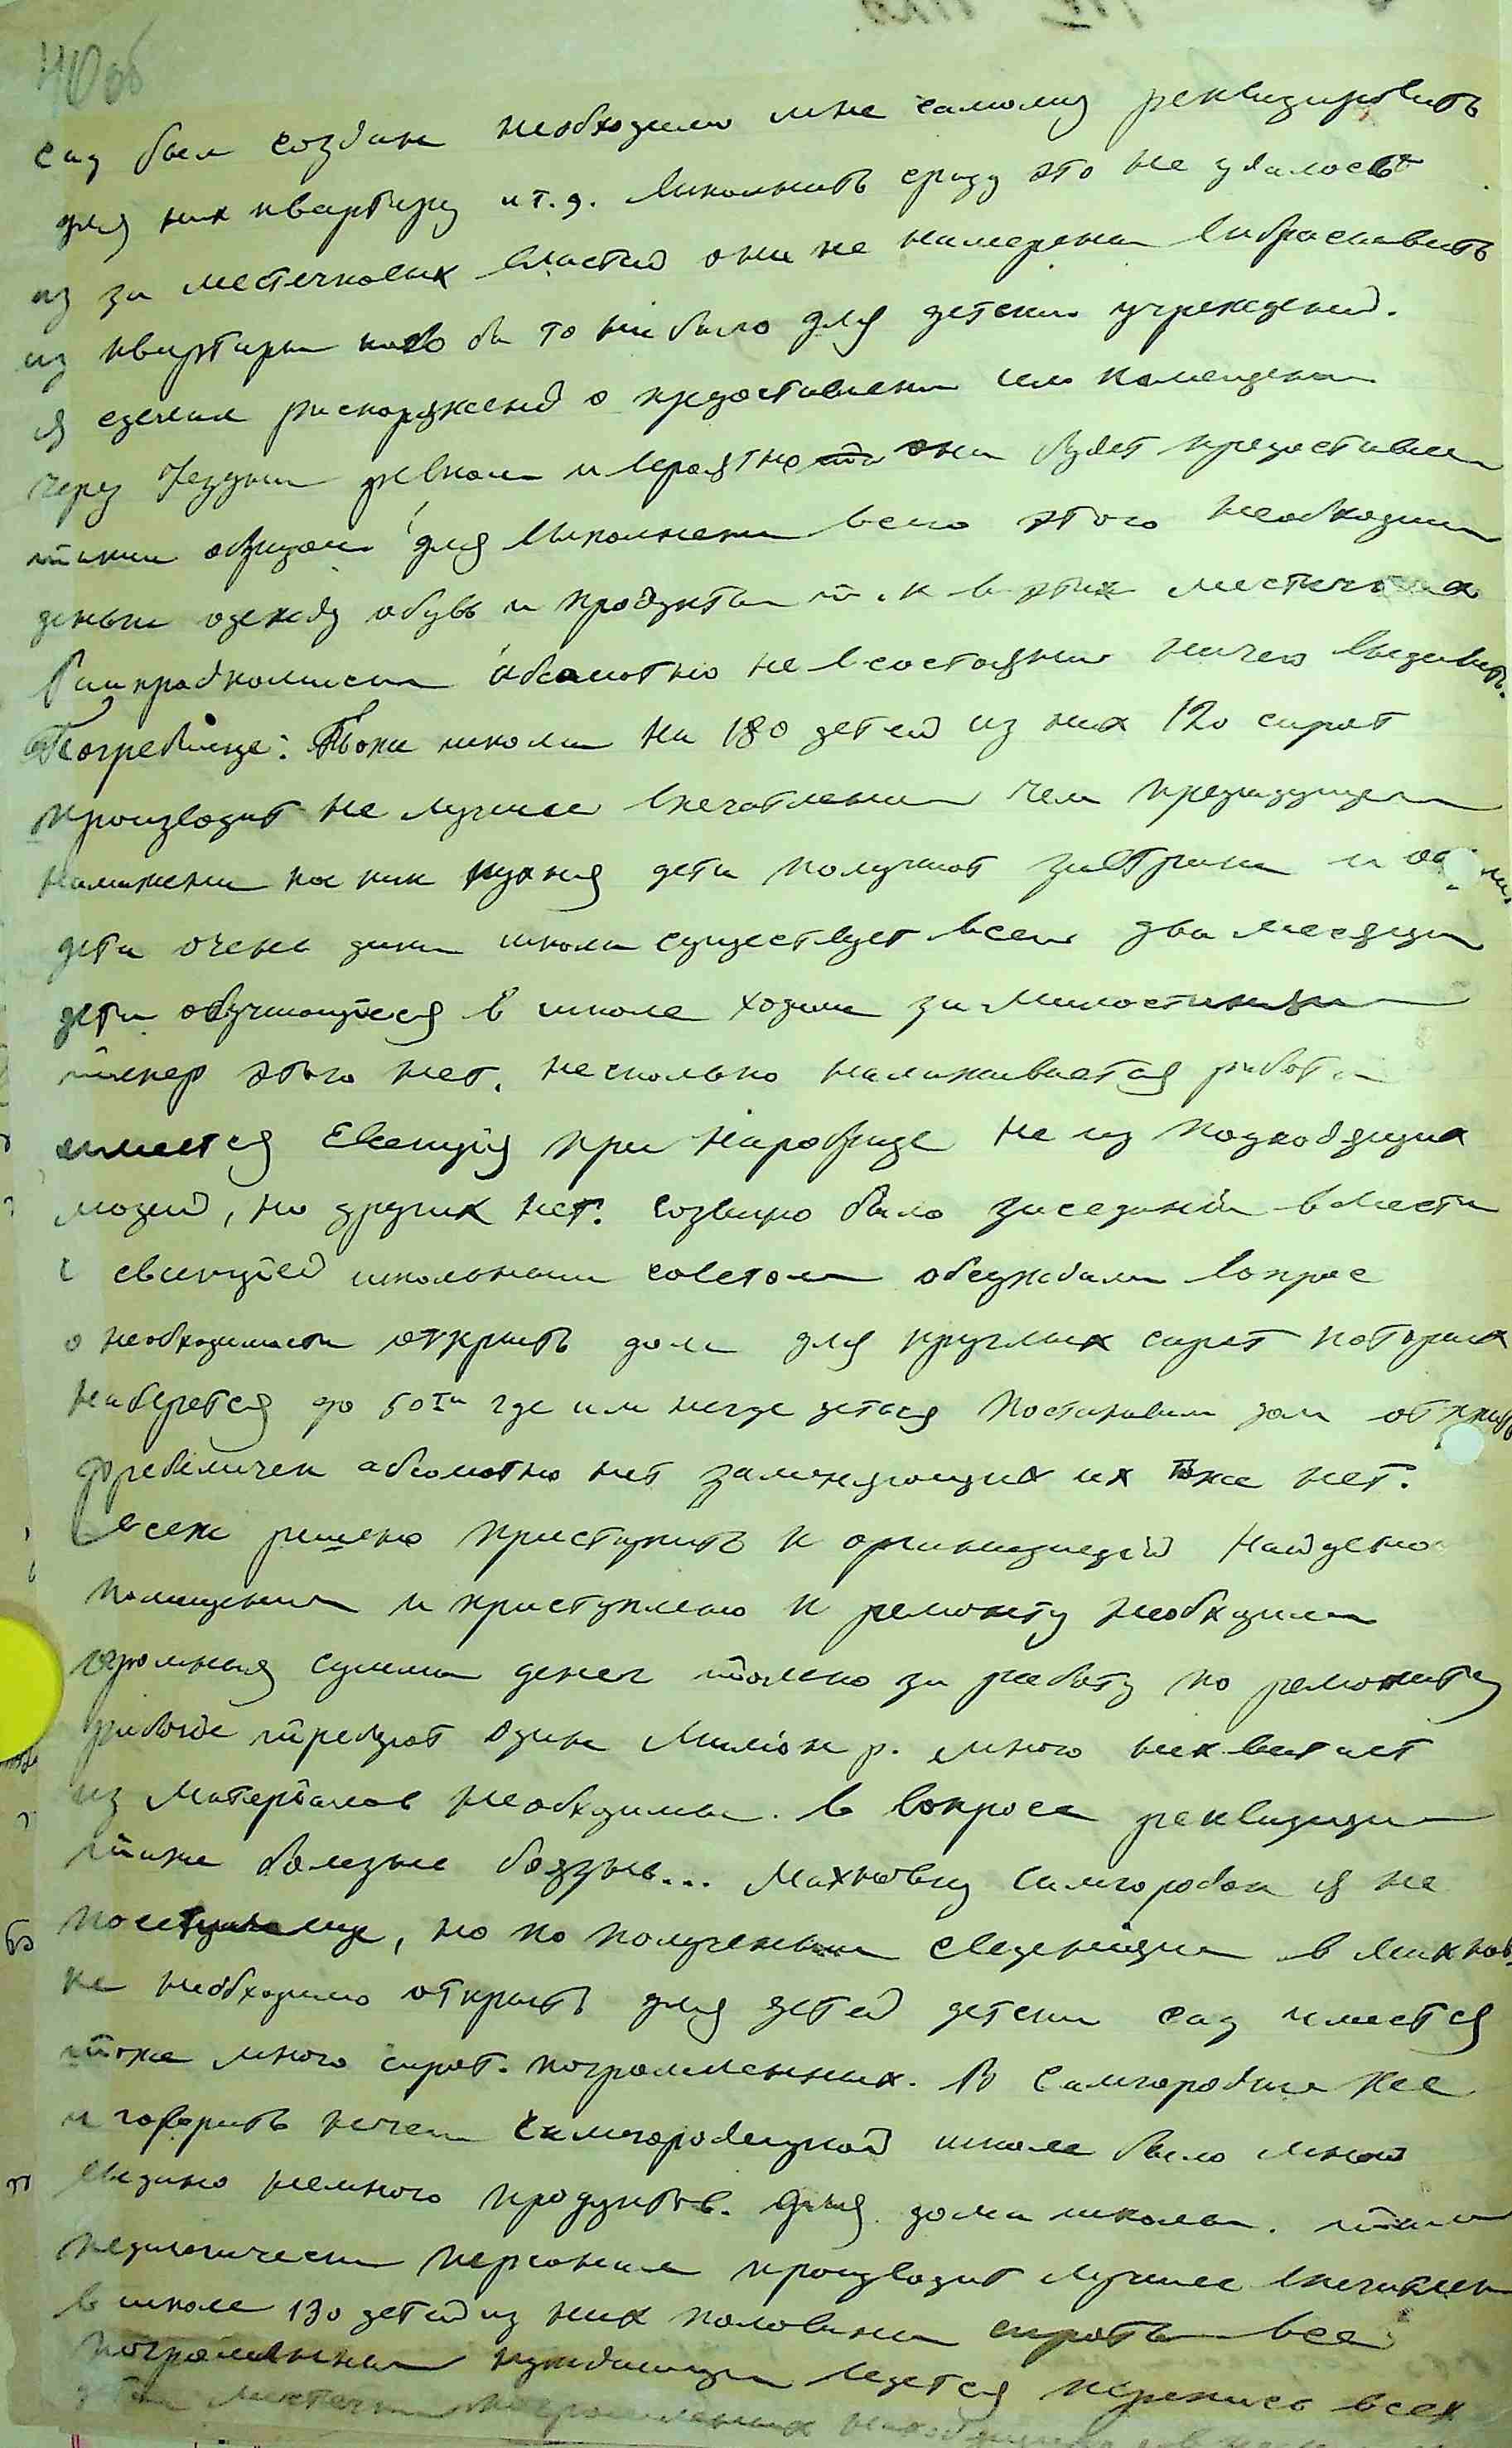 40 об
сад был создан необходимо мне самому реквизировать
для них квартиру и т.д. Выполнить сразу это не удалось
из за местечковых властей они не намерены выбрасывать
из квартиры кого бы то ни было для детских учреждений.
я сделал распоряжений о предоставлении им помещения
через ревком и вероятно они будет предоставлен
таким образом для выполнения всего этого необходим
деньги одежду обувь и продукты т.к в этих местечках
Райпродкомиссии абсолютно не в состоянии ничего выдавать.
Погребище: Тоже школа на 180 детей из них 120 сирот
производит не лучшее впечатление чем предыдущая
налажена кое как кухня дети получают завтраки и
дети очень дики школа существует всего два месяца
дети обучающиеся в школе ходили за милостиней
тепер этого нет. несколько налаживается работа
имеется Евсекция при Наробразе не из подходящих
людей, но других нет. Созвано было заседание вместе
с евсекцией школьным советом обсуждали вопрос
о необходимости открыть дом для круглых сирот которых
наберется до 50ти где им негде деться Постановили дом открыть
фребеличек абсолютно нет заменяющих их тоже нет.
Всеж решено приступить к организацией Найдено
помещения и приступлено к ремонту необходима
огромная сумма денег только за работу по ремонту
рабочие требуют один милион р. много нехватает
из материалов необходимы. В вопросе реквизиции
также болезнь боязнь... Махновку Самгородок я не
посетил еще, но по полученым сведениям в Махнов-
ке необходимо открыть для детей детски сад имеется
тоже много сирот. погромленных. В Самгородке же
и говорить нечем Самгородецкой школе было мной
выдано немного продуктов. Для дома школы. там
педагогически персонал производит лучшее впечатлен
в школе 130 детей из них половина сироты все
погромленны нуждающи ведется перепись всех
детей местечка погромленных